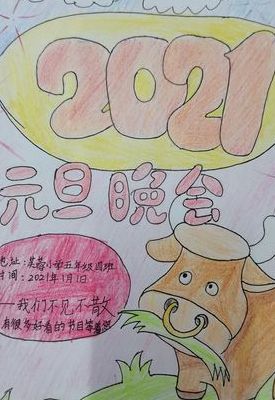 2021
元旦晚会
地址:芙蓉小学五年级四班
时间:2021年1月1日
——我们不见不散
有很多好看的节目等着您